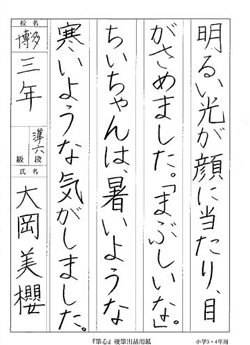 明るい光が顔に当たり、目
がさめました。「まぶしいな。」
ちいちゃんは、暑いような
寒いような気がしました。
校名
博多
三年
準六段
氏名
大岡美櫻
『筆心』硬筆出品用紙
小学3・4年用